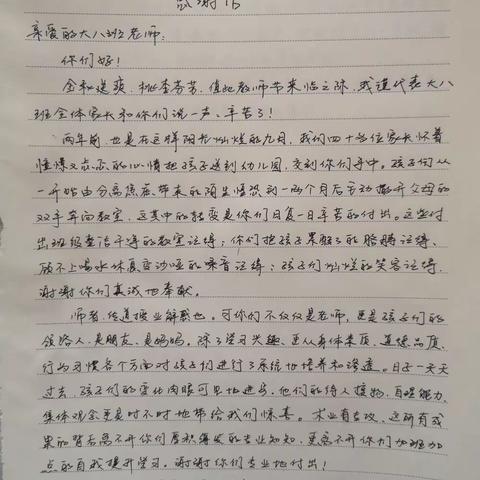 感谢信
亲爱的大八班老师:
你们好!
金秋送爽,桃李芬芳,值此教师节来临之际,我谨代表大八
班全体家长和你们说一声、辛苦了!
两年前,也是在这样阳光灿烂的九月,我们四十多位家长怀着
憧憬又忐忑的心情把孩子送到幼儿园,交到你们手中。孩子们从
一开始由分离焦虑带来的陌生恐到一两个月后主动撒开父母的
双手奔向教室,这其中的转变是你们日复一日辛苦的付出。这些付
出班级整洁干净的教室记得;你们抱孩子累酸了的胳膊记得、
顾不上喝水休息变沙哑的嗓音记得;孩子们灿烂的笑容记得,
谢谢你们真诚地奉献。
师者,传道授业解惑也。可你们不仅仅是老师,更是孩子们的
领路人、是朋友、是妈妈。除了学习兴趣,更从身体素质、道德品质、
行为习惯各个方面对孩子们进行了系统地培养和渗透。日子一天天
过去,孩子们的变化肉眼可见地进步,他们的待人接物、自理能力、
集体观念更是时不时地带给我们惊喜。术业有专攻,这所有成
果的背后离不开你们厚积薄发的专业知识,更离不开你们加班加
点的自我提升学习。谢谢你们专业地付出!